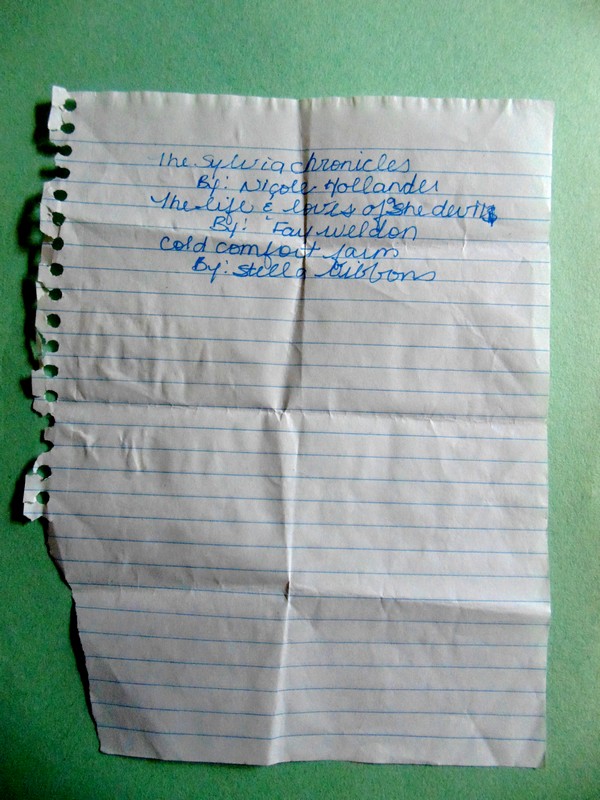 The Sylvia chronicles
By: Nicole Hollander
The life & loves of a she devil
By: Fay weldon
Cold comfort farm
By: Stella Gibbons